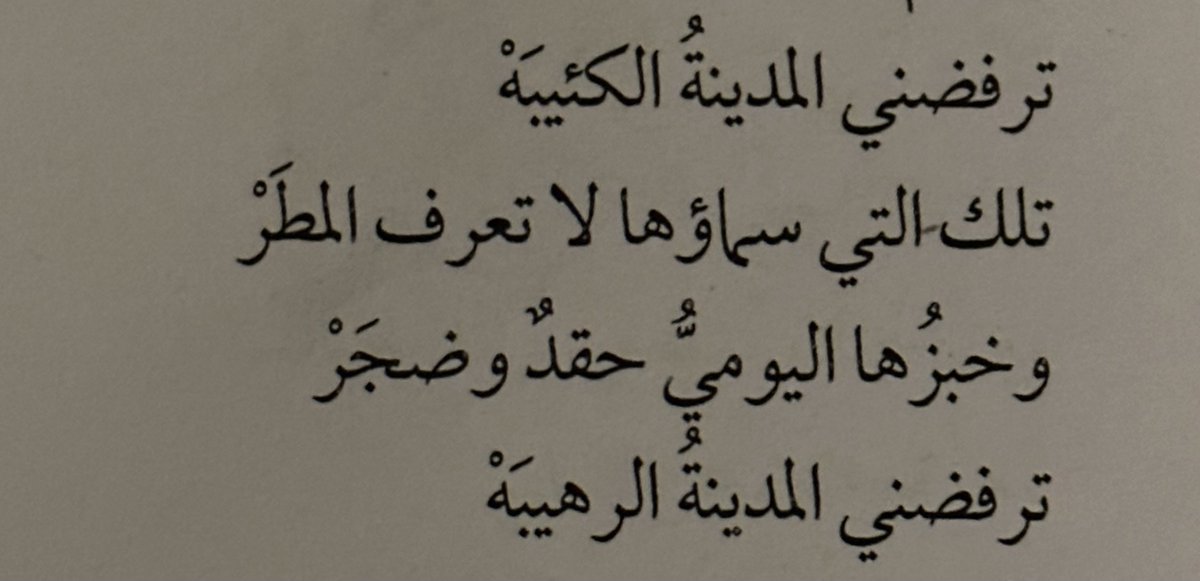 ترفضني المدينةُ الكئيبَهْ
تلك التي سماؤها لا تعرف المطَرْ
وخبزُها اليوميُّ حقدٌ وضجَرْ
ترفضني المدينةُ الرهيبَهْ